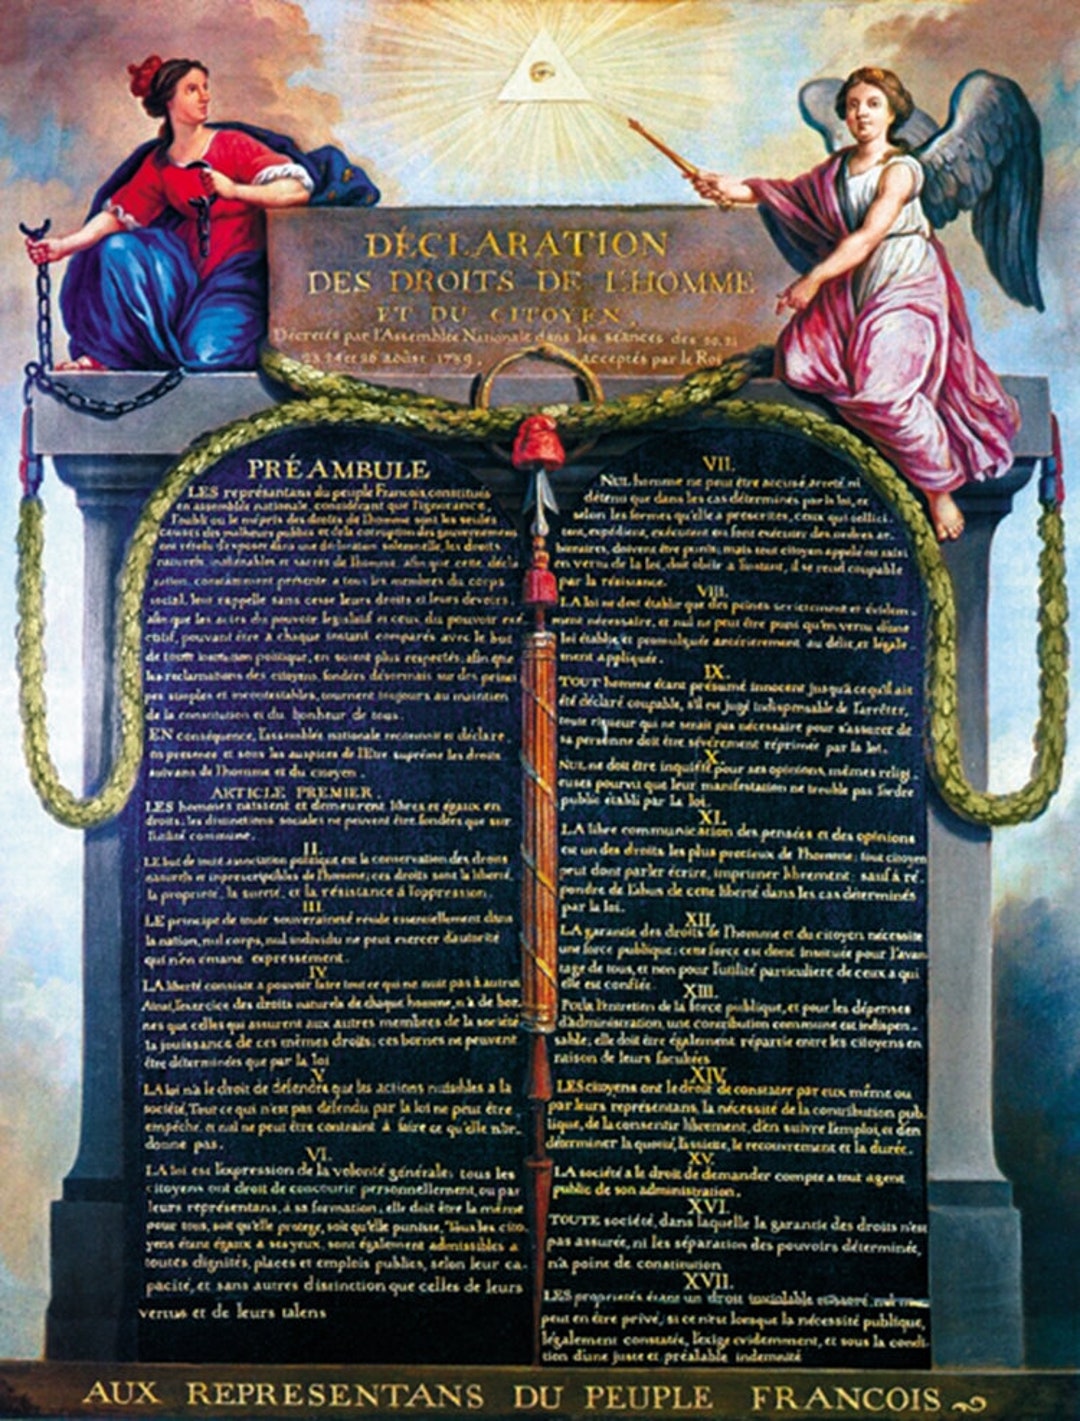 DÉCLARATION
DES DROITS DE L'HOMME
ET DU CITOYEN,
Décretés par l'Assemblée Nationale dans les séances des 20, 21
23, 24 et 26 août 1789, acceptés par le Roi
PRÉAMBULE
LES représentans du peuple François, constitués
en assemblée nationale, considérant que l'ignorance,
l'oubli ou le mépris des droits de l'homme sont les seules
causes des malheurs publics et de la corruption des gouvernemens
ont résolu d'exposer dans une déclaration solemnelle, les droits
naturels, inaliénables et sacrés de l'homme, afin que cette décla
ration, constamment présente a tous les membres du corps
social, leur rappelle sans cesse leurs droits et leurs devoirs
afin que les actes du pouvoir législatif et ceux du pouvoir exé
cutif, pouvant être à chaque instant comparés avec le but
de toute institution politique, en soient plus respectés, afin que
les réclamations des citoyens, fondées désormais sur des principes
simples et incontestables, tournent toujours au maintien
de la constitution et du bonheur de tous.
EN conséquence, l'assemblée nationale reconnoit et déclare
en presence et sous les auspices de l'Etre suprême les droits
suivans de l'homme et du citoyen.
ARTICLE PREMIER.
LES hommes naissent et demeurent libres et égaux en
droits, les distinctions sociales ne peuvent être fondées que sur
l'utilité commune.
II.
LE but de toute association politique est la conservation des droits
naturels et inprescriptibles de l'homme; ces droits sont la liberté,
la propriété, la sureté, et la résistance à l'oppression.
III.
LE principe de toute souveraineté réside essentiellement dans
la nation, nul corps, nul individu ne peut exercer d'autorité
qui n'en emane expressément.
IV.
LA liberté consiste a pouvoir faire tout ce qui ne nuit pas à autrui
Ainsi, l'exercice des droits naturels de chaque homme, n'a de bor-
nes que celles qui assurent aux autres membres de la société
la jouissance de ces mêmes droits; ces bornes ne peuvent
être déterminées que par la loi
V.
LA loi n'a le droit de défendre que les actions nuisibles a la
société, Tout ce qui n'est pas défendu par la loi ne peut être
empêché, et nul ne peut être contraint à faire ce qu'elle n'or-
donne pas.
VI.
LA loi est l'expression de la volonté générale; tous les
citoyens ont droit de concourir personnellement, ou par
leurs représentans, à sa formation, elle doit être la même
pour tous, soit qu'elle protege, soit qu'elle punisse, Tous les cito-
yens étant égaux à ses yeux, sont également admissibles a
toutes dignités, places et emplois publics, selon leur ca-
pacité, et sans autres distinction que celles de leurs
vertus et de leurs talens
VII.
NUL homme ne peut être accusé, arreté ni
détenu que dans les cas déterminés par la loi, et
selon les formes qu'elle a prescrites, ceux qui sollici-
tent, expédient, exécutent ou font exécuter des ordres ar-
bitraires, doivent être punis; mais tout citoyen appelé ou saisi
en vertu de la loi, doit obéir a l'instant, il se rend coupable
par la résistance.
VIII.
LA loi ne doit établir que des peines strictement et évidem-
ment nécessaire, et nul ne peut être puni qu'en vertu d'une
loi établie et promulguée antérierement au délit, et légale-
ment appliquée.
IX.
TOUT homme étant présumé innocent jusqu'a ce qu'il ait
été déclaré coupable, s'il est jugé indispensable de l'arrêter,
toute rigueur qui ne serait pas nécessaire pour s'assurer de
sa personne doit être sévèrement réprimée par la loi.
X.
NUL ne doit être inquiété pour ses opinions, mêmes religi-
euses pourvu que leur manifestation ne trouble pas l'ordre
public établi par la loi.
XI.
LA libre communication des pensées et des opinions
est un des droits les plus precieux de l'homme; tout citoyen
peut dont parler écrire, imprimer librement; sauf à ré-
pondre de l'abus de cette liberté dans les cas déterminés
par la loi.
XII.
LA garantie des droits de l'homme et du citoyen nécessite
une force publique; cette force est donc instituée pour l'avan
tage de tous, et non pour l'utilité particuliere de ceux a qui
elle est confiée.
XIII.
POUR l'entretien de la force publique, et pour les dépenses
d'administration, une contribution commune est indispen-
sable; elle doit être également répartie entre les citoyens en
raison de leurs facultées
XIV.
LES citoyens ont le droit de constater par eux même ou
par leurs représentans, la nécessité de la contribution pub-
lique, de la consentir librement, d'en suivre l'emploi, et d'en
déterminer la quotité, l'assiette, le recouvrement et la durée.
XV.
LA société a le droit de demander compte a tout agent
public de son administration.
XVI.
TOUTE société, dans laquelle la garantie des droits n'est
pas assurée, ni les séparation des pouvoirs déterminée,
n'a point de constitution
XVII.
LES proprietés étant un droit inviolable et sacré, nul ne
peut en être privé, si ce n'est lorsque la nécessité publique,
légalement constatée, l'exige evidemment, et sous la condi-
tion d'une juste et préalable indemnité
AUX REPRESENTANS DU PEUPLE FRANCOIS